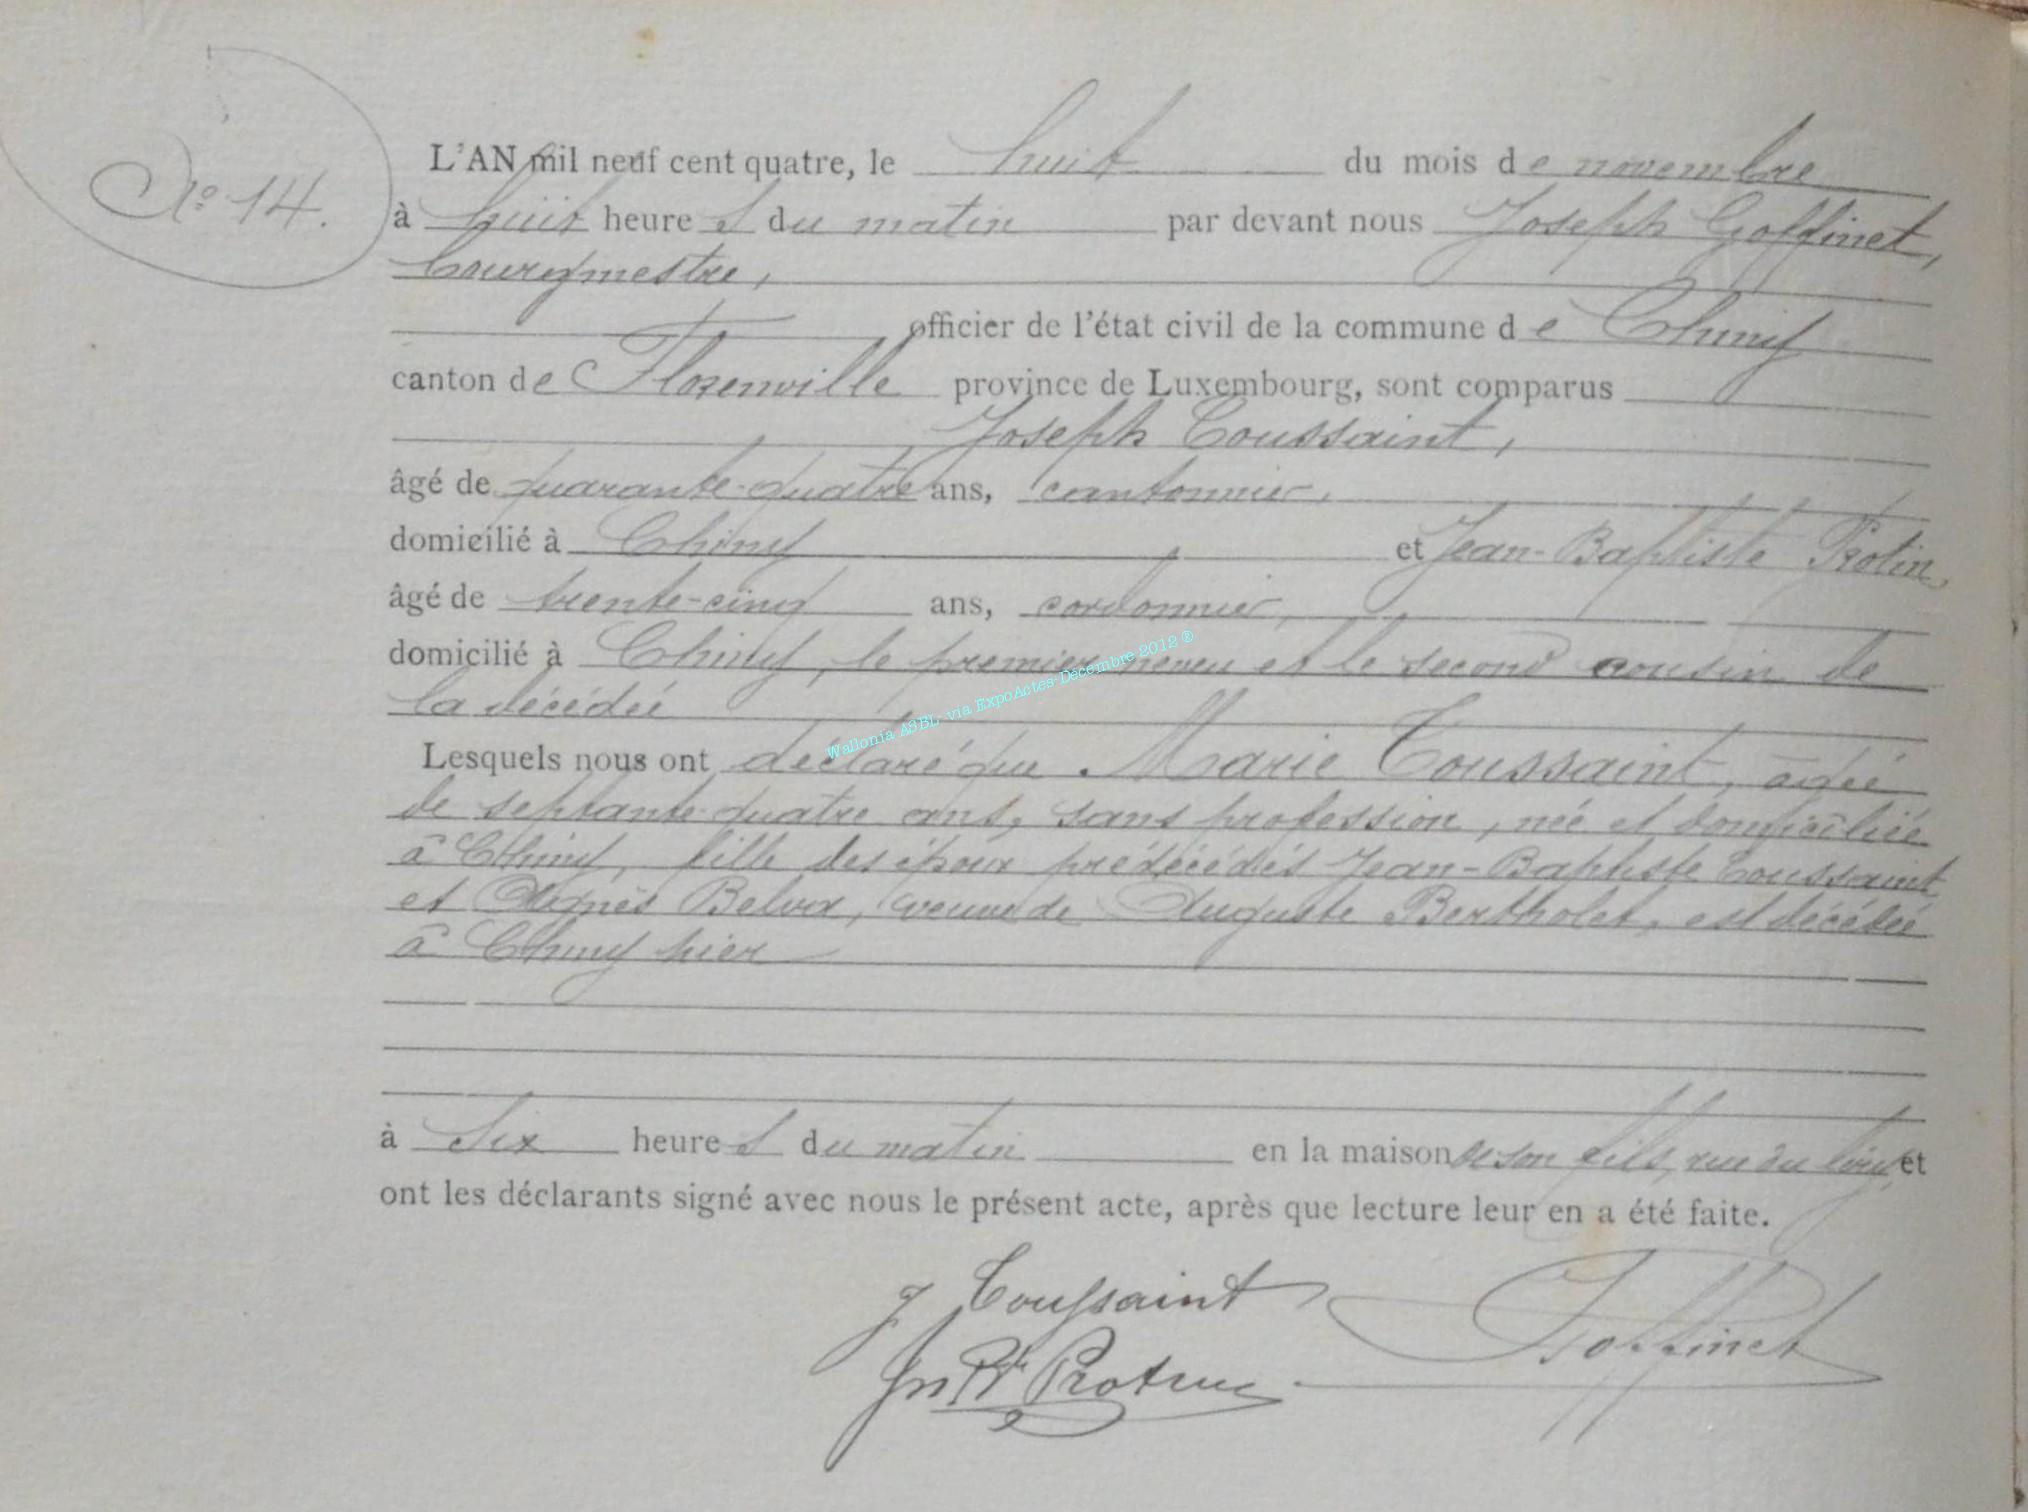 N° 14.
L'AN mil neuf cent quatre, le huit du mois de novembre
à huit heures du matin par devant nous Joseph Goffinet,
bourgmestre,
officier de l'état civil de la commune de Chiny
canton de Florenville province de Luxembourg, sont comparus
Joseph Toussaint,
âgé de quarante-quatre ans, cantonnier,
domicilié à Chiny et Jean-Baptiste Protin,
âgé de trente-cinq ans, cordonnier,
domicilié à Chiny, le premier neveu et le second cousin de
la décédée
Wallonia ASBL, via ExpoActes-Décembre 2012 ®
Lesquels nous ont déclaré que Marie Toussaint, âgée
de septante-quatre ans, sans profession, née et domiciliée
à Chiny, fille des époux prédécédés Jean-Baptiste Toussaint
et Agnès Belva, veuve de Auguste Bertholet, est décédée
à Chiny hier
à six heures du matin en la maison de son fils, rue du et
ont les déclarants signé avec nous le présent acte, après que lecture leur en a été faite.
J Toussaint
Goffinet
Jn Bte Protin